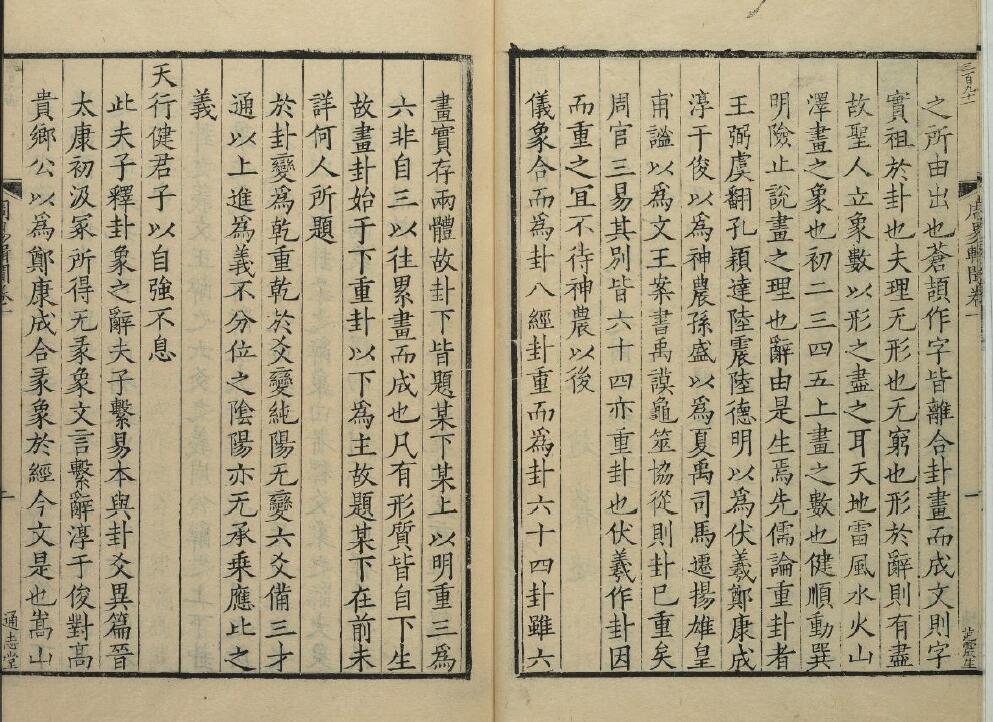 三百九十
周易輯聞卷一
一
范震生
之所由出也蒼頡作字皆離合卦畫而成文則字
實祖於卦也夫理无形也无窮也形於辭則有盡
故聖人立象數以形之盡之耳天地雷風水火山
澤畫之象也初二三四五上畫之數也健順動巽
明險止說畫之理也辭由是生焉先儒論重卦者
王弼虞翻孔穎達陸震陸德明以為伏羲鄭康成
淳于俊以為神農孫盛以為夏禹司馬遷揚雄皇
甫謐以為文王案書禹謨龜筮協從則卦已重矣
周官三易其別皆六十四亦重卦也伏羲作卦因
而重之宜不待神農以後
儀象合而為卦八經卦重而為卦六十四卦雖六
畫實存兩體故卦下皆題某下某上以明重三為
六非自三以往累畫而成也凡有形質皆自下生
故畫卦始于下重卦以下為主故題某下在前未
詳何人所題
於卦變為乾重乾於爻變純陽无變六爻備三才
通以上進為義不分位之陰陽亦无承乘應比之
義
天行健君子以自強不息
此夫子釋卦象之辭夫子繫易本與卦爻異篇晉
太康初汲冢所得无彖象文言繫辭淳于俊對高
貴鄉公以為鄭康成合彖象於經今文是也嵩山
通志堂